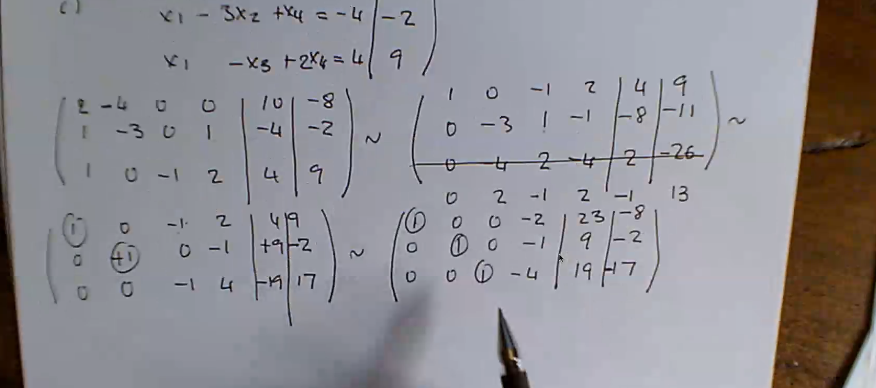 c)
x1 - 3x2 + x4 = -4 | -2
x1 - x3 + 2x4 = 4 | 9
2 -4 0 0 | 10 | -8
1 -3 0 1 | -4 | -2
1 0 -1 2 | 4 | 9
~
1 0 -1 2 | 4 | 9
0 -3 1 -1 | -8 | -11
0 -4 2 -4 | 2 | -26
0 2 -1 2 -1 13
~
1 0 -1 2 | 4 | 9
0 +1 0 -1 | +9 | -2
0 0 -1 4 | -19 | 17
~
1 0 0 -2 | 23 | -8
0 1 0 -1 | 9 | -2
0 0 1 -4 | 19 | -17